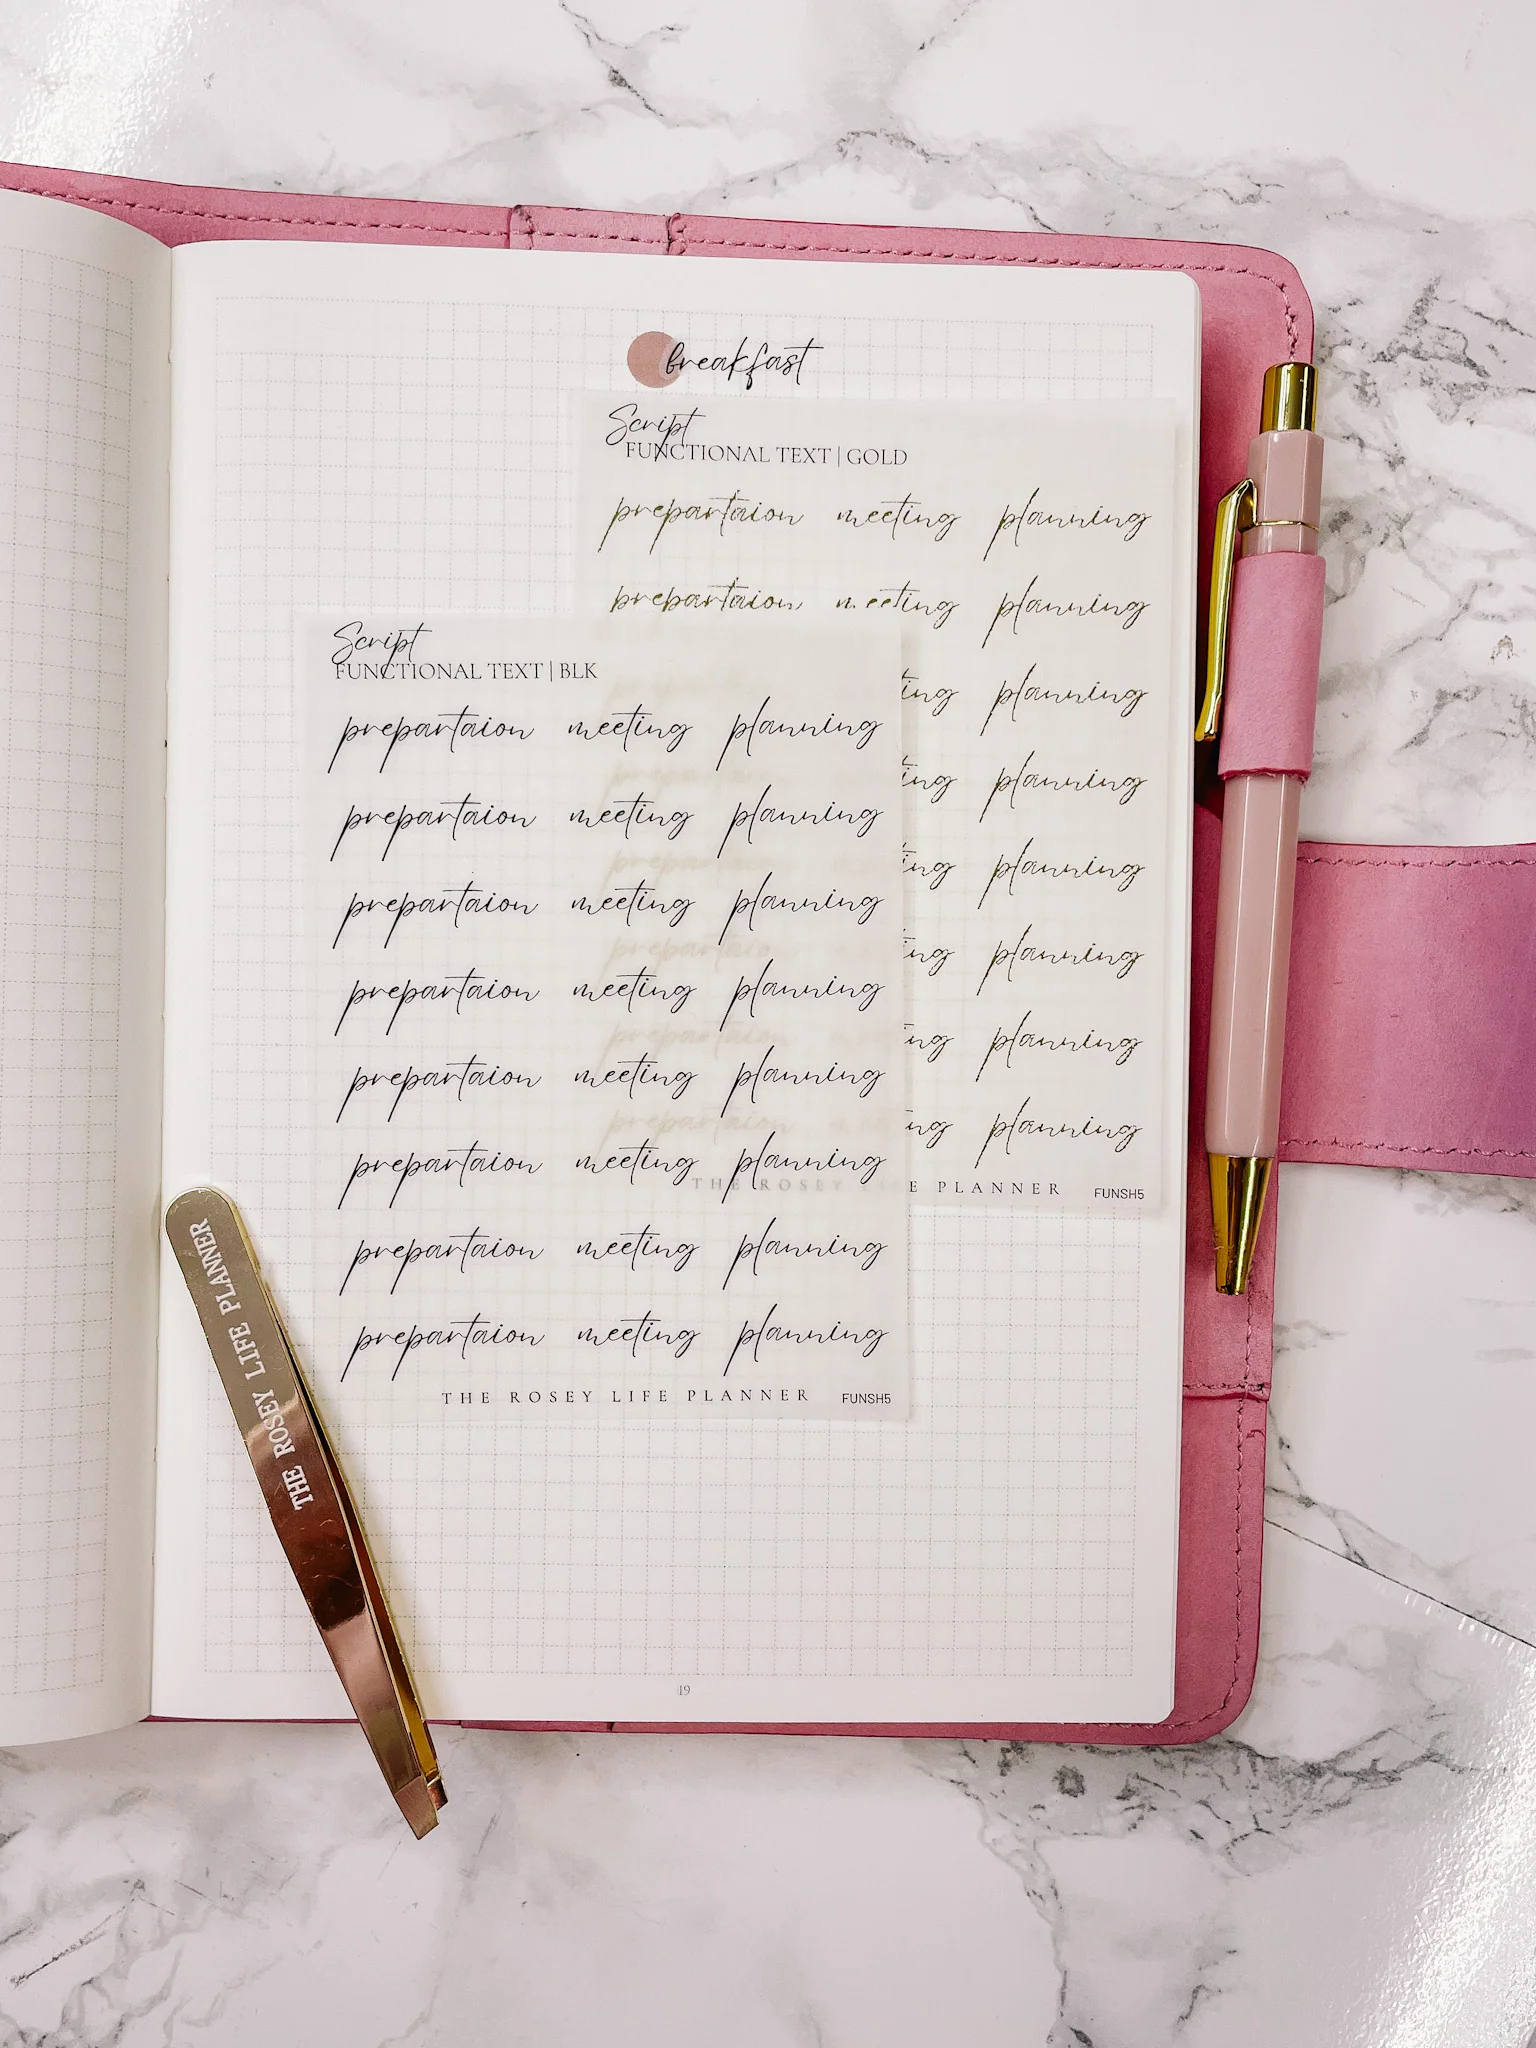 breakfast
Script
FUNCTIONAL TEXT | GOLD
prepartaion meeting planning
prepartaion meeting planning
ting planning
ting planning
ting planning
ing planning
ing planning
ing planning
THE ROSEY LIFE PLANNER FUNSH5
Script
FUNCTIONAL TEXT | BLK
prepartaion meeting planning
prepartaion meeting planning
prepartaion meeting planning
prepartaion meeting planning
prepartaion meeting planning
prepartaion meeting planning
prepartaion meeting planning
prepartaion meeting planning
THE ROSEY LIFE PLANNER FUNSH5
THE ROSEY LIFE PLANNER
49